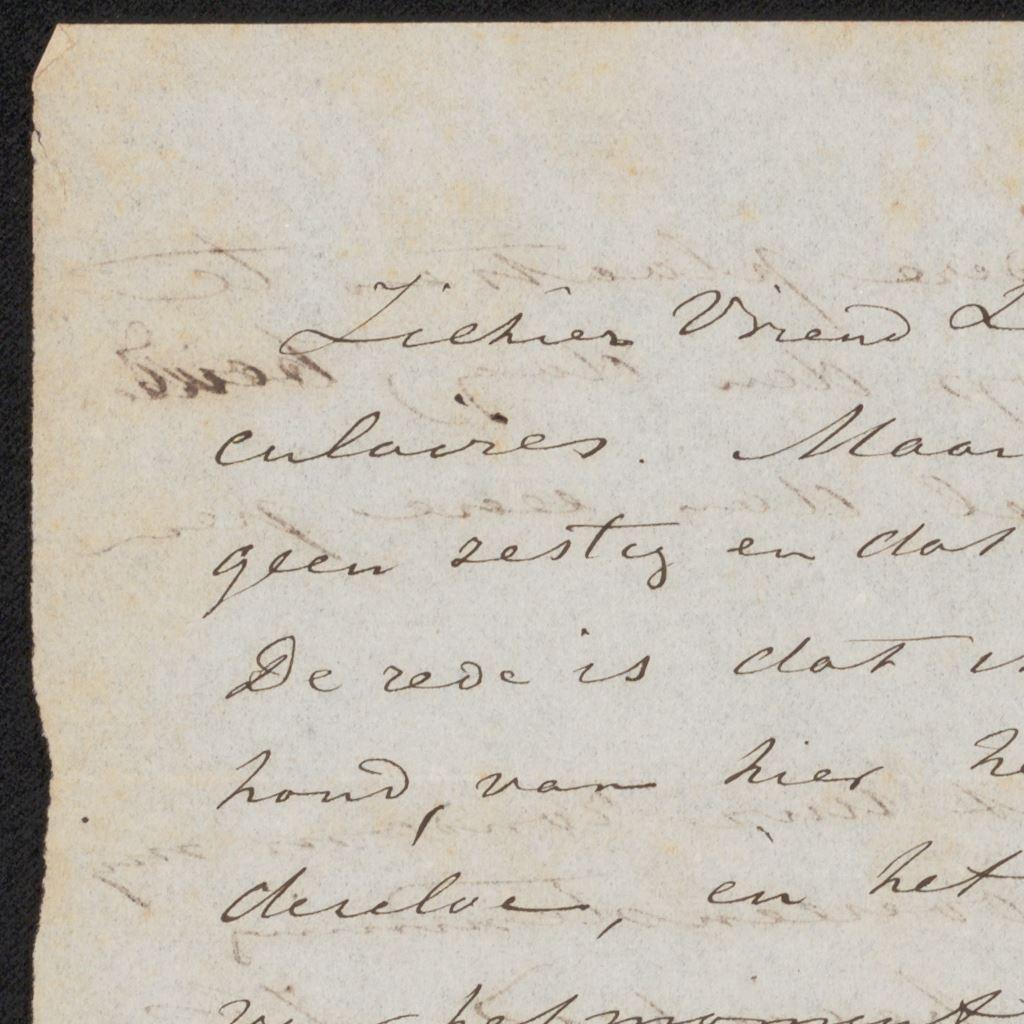 Ziehier Vriend
culaires. Maar
geen zestig en dat
De rede is dat
hond, van hier
dezelve, en het
het moment